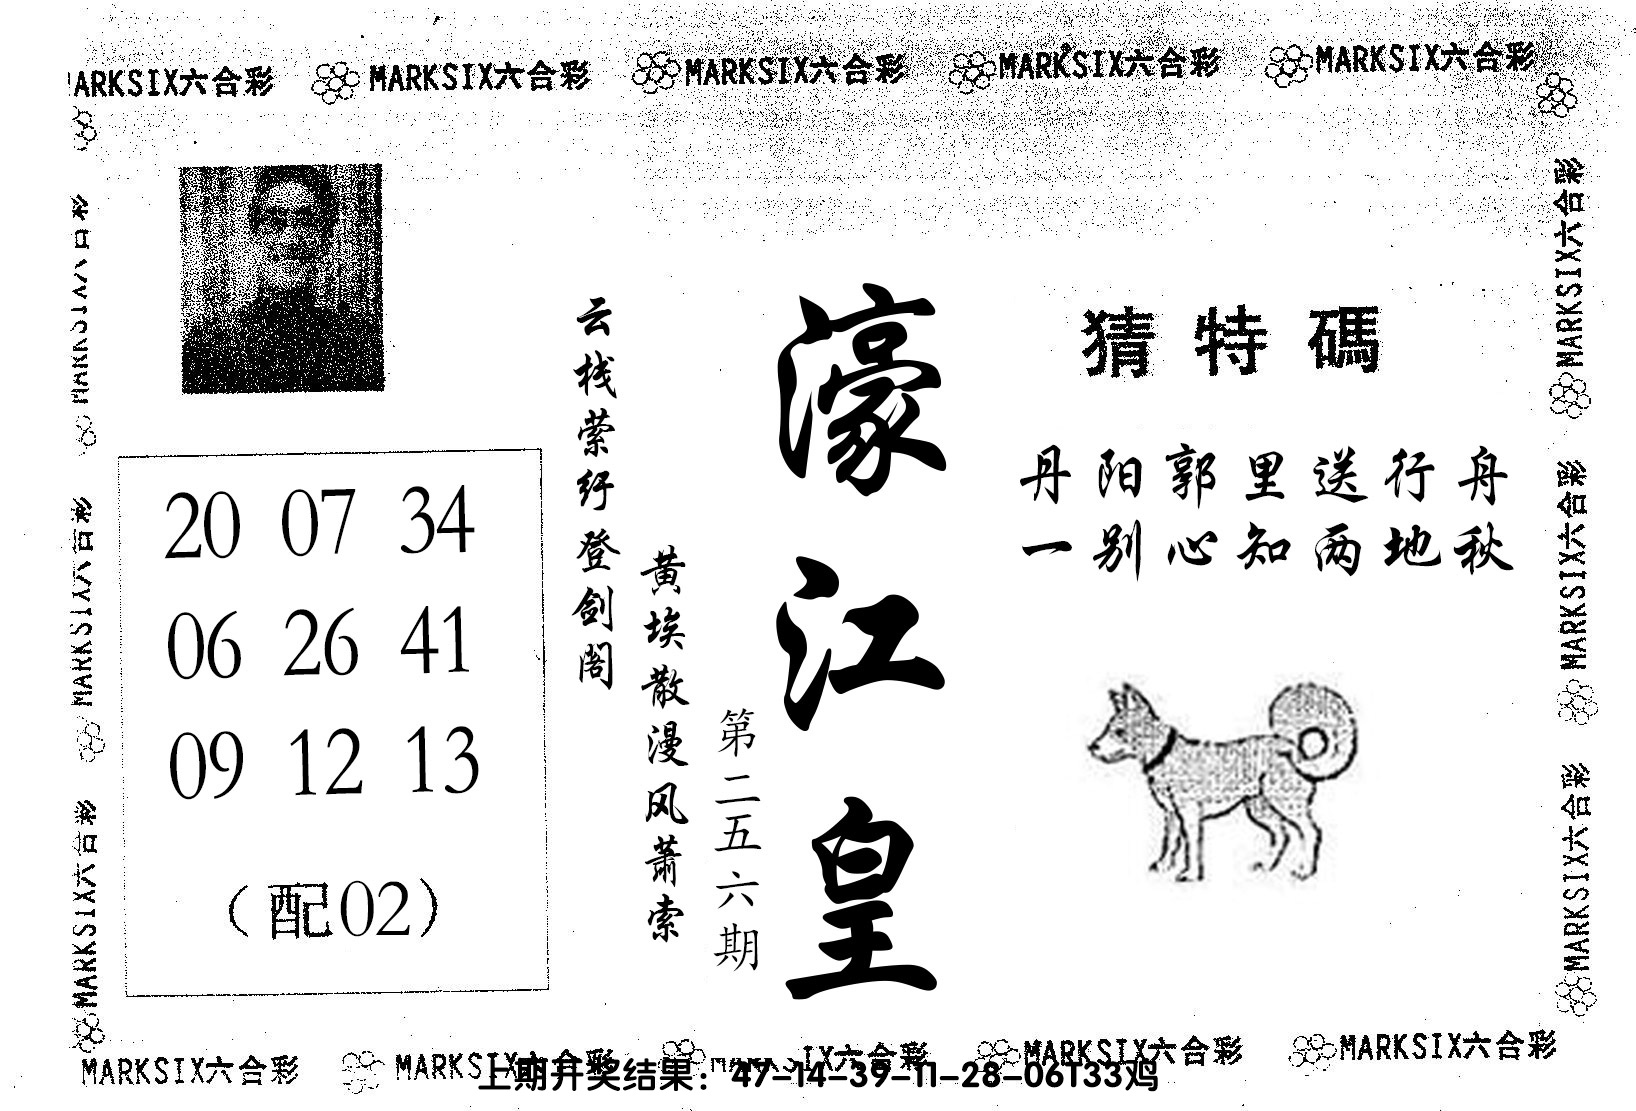 MARKSIX六合彩 MARKSIX六合彩 MARKSIX六合彩 MARKSIX六合彩 MARKSIX六合彩
猜特碼
丹阳郭里送行舟
一别心知两地秋
濠江皇
第二五六期
黄埃散漫风萧索
云栈萦纡登剑阁
20 07 34
06 26 41
09 12 13
（配02）
MARKSIX六合彩
MARKSIX六合彩
MARKSIX六合彩
MARKSIX六合彩
MARKSIX六合彩
MARKSIX六合彩
MARKSIX六合彩 MARKSIX六合彩 MARKSIX六合彩 MARKSIX六合彩
上期开奖结果：47-14-39-11-28-06T33鸡